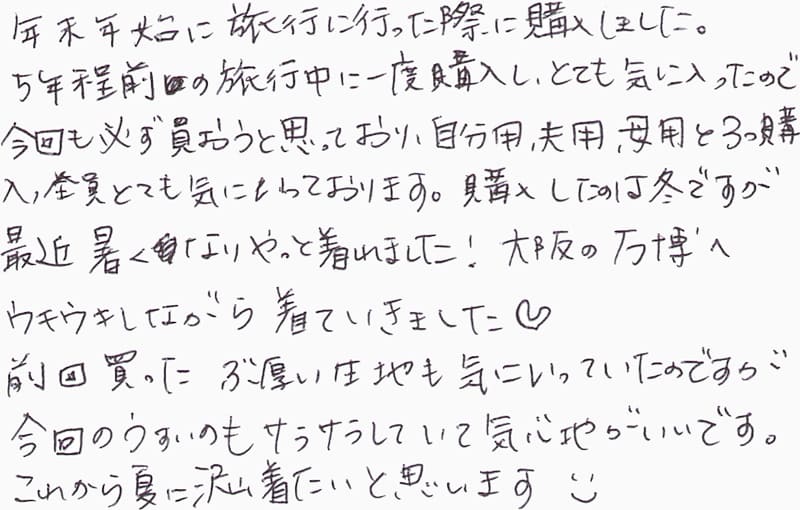 年末年始に旅行に行った際に購入しました。
5年程前の旅行中に一度購入し、とても気に入ったので
今回も必ず買おうと思っており、自分用、夫用、母用と3つ購
入、全員とても気に入っております。購入したのは冬ですが
最近暑くなりやっと着れました！大阪の万博へ
ウキウキしながら着ていきました♡
前回買ったぶ厚い生地も気にいっていたのですが
今回のうすいのもサラサラしていて気心地がいいです。
これから夏に沢山着たいと思います☺